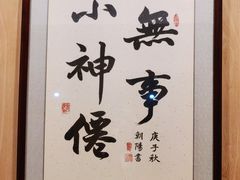 無事
小神僊
庚子秋
朝陽書